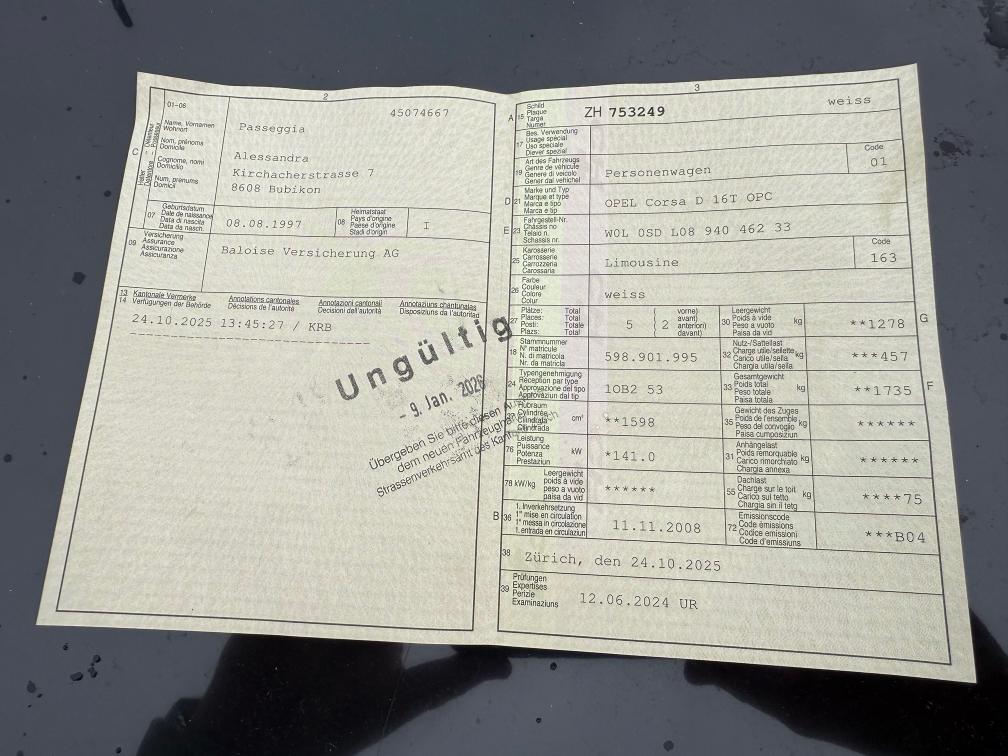 2
01-06
45074667
C
Halter Détenteur
Detentore Possessur
Name, Vornamen
Wohnort
Nom, prénoms
Domicile
Cognome, nomi
Domicilio
Num, prenums
Domicil
Passeggia
Alessandra
Kirchacherstrasse 7
8608 Bubikon
07
Geburtsdatum
Date de naissance
Data di nascita
Data da nasch.
08.08.1997
08
Heimatstaat
Pays d'origine
Paese d'origine
Stadi d'origin
I
09
Versicherung
Assurance
Assicurazione
Assicuranza
Baloise Versicherung AG
13 Kantonale Vermerke Annotations cantonales Annotazioni cantonali Annotaziuns chantunalas
14 Verfügungen der Behörde Décisions de l'autorité Decisioni dell'autorità Disposiziuns da l'autoritad
24.10.2025 13:45:27 / KRB
Ungültig
- 9. Jan. 2026
Übergeben Sie bitte diesen
dem neuen Fahrzeughalter
Strassenverkehrsamt des Kantons
3
A
15
Schild
Plaque
Targa
Numer
ZH 753249
weiss
17
Bes. Verwendung
Usage spécial
Uso speciale
Diever spezial
19
Art des Fahrzeugs
Genre de véhicule
Genere di veicolo
Gener dal vehichel
Personenwagen
Code
01
D
21
Marke und Typ
Marque et type
Marca e tipo
Marca e tip
OPEL Corsa D 16T OPC
E
23
Fahrgestell-Nr.
Châssis no
Telaio n.
Schassis nr.
W0L 0SD L08 940 462 33
25
Karosserie
Carrosserie
Carrozzeria
Carossaria
Limousine
Code
163
26
Farbe
Couleur
Colore
Colur
weiss
27
Plätze: Total
Places: Total
Posti: Totale
Plazs: Total
5
( 2
vorne)
avant)
anteriori)
davant)
30
Leergewicht
Poids à vide
Peso a vuoto
Paisa da vid
kg
**1278
G
18
Stammnummer
N° matricule
N. di matricola
Nr. da matricla
598.901.995
32
Nutz-/Sattellast
Charge utile/sellette
Carico utile/sella
Chargia utila/sella
kg
***457
24
Typengenehmigung
Réception par type
Approvazione del tipo
Approvaziun dal tip
1OB2 53
33
Gesamtgewicht
Poids total
Peso totale
Paisa totala
kg
***1735
F
Hubraum
Cylindrée
Cilindrata
Cilindrada
cm³
**1598
35
Gewicht des Zuges
Poids de l'ensemble
Peso del convoglio
Paisa cumposiziun
kg
******
76
Leistung
Puissance
Potenza
Prestaziun
kW
*141.0
31
Anhängelast
Poids remorquable
Carico rimorchiato
Chargia annexa
kg
******
78 kW/kg
Leergewicht
poids à vide
peso a vuoto
paisa da vid
******
55
Dachlast
Charge sur le toit
Carico sul tetto
Chargia sin il tetg
kg
****75
B
36
1. Inverkehrsetzung
1re mise en circulation
1a messa in circolazione
1. entrada en circulaziun
11.11.2008
72
Emissionscode
Code émissions
Codice emissioni
Code d'emissiuns
***B04
38
Zürich, den 24.10.2025
39
Prüfungen
Expertises
Perizie
Examinaziuns
12.06.2024 UR